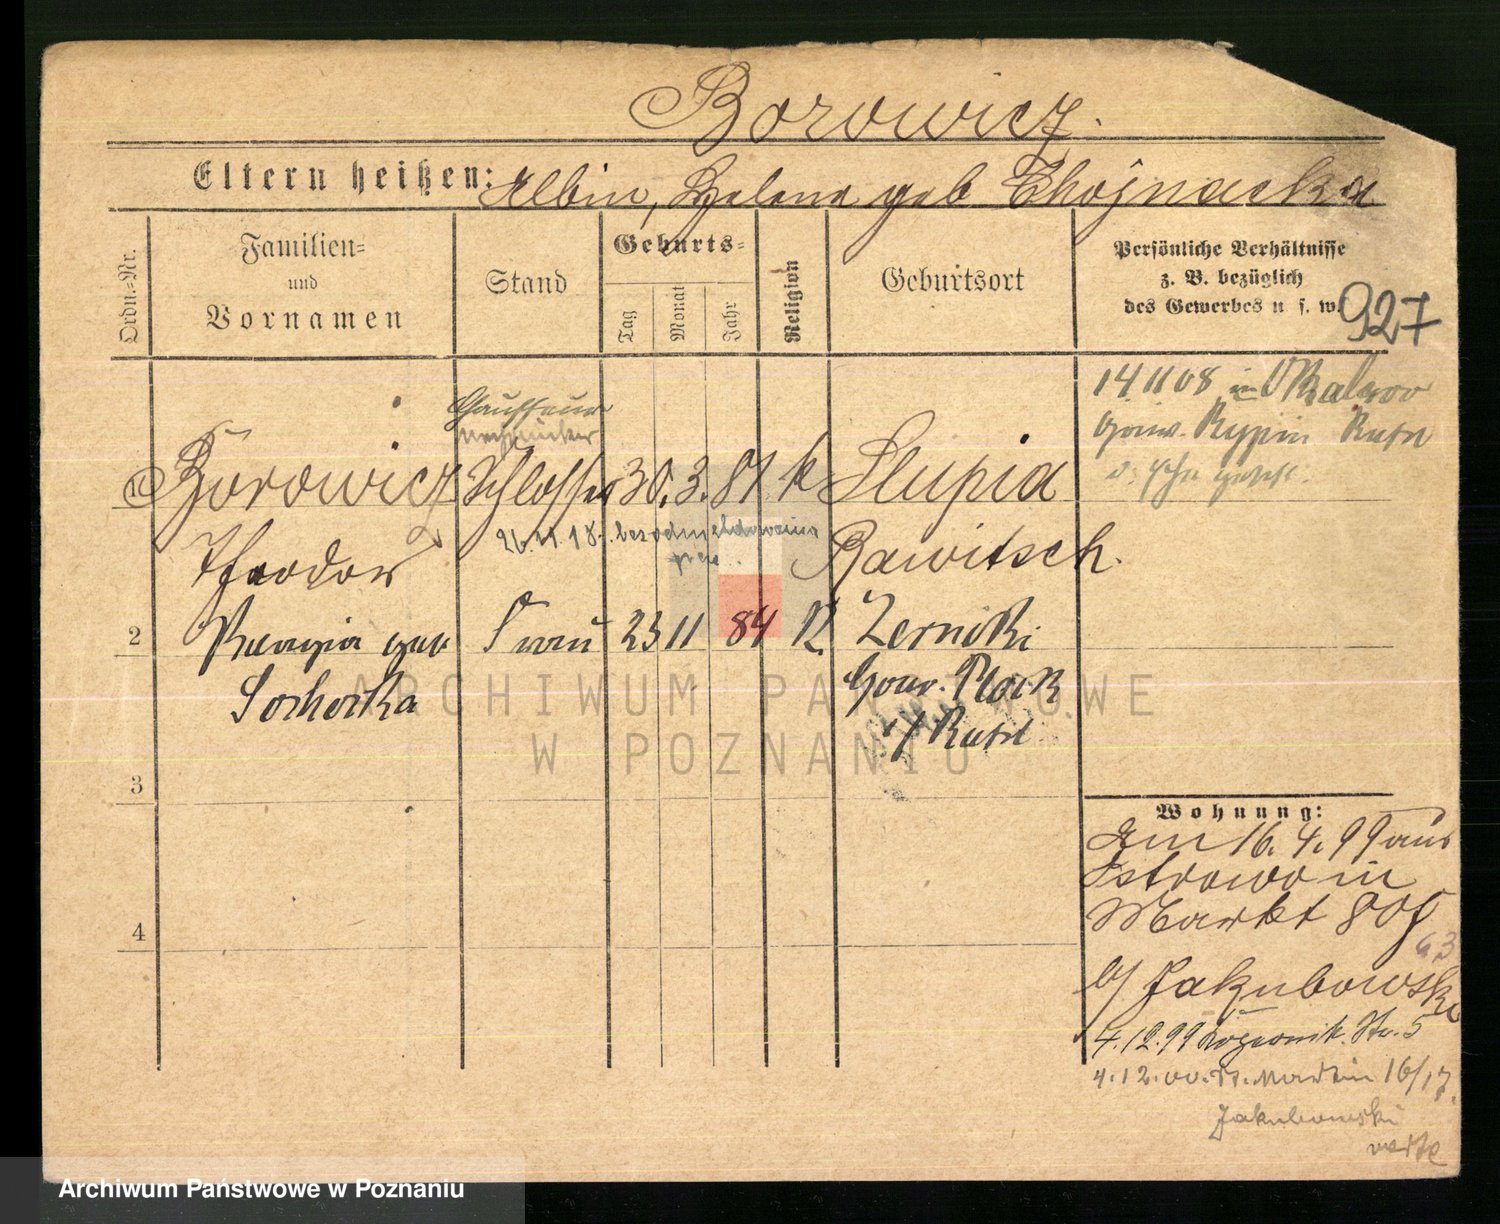 Borowicz.
Eltern heißen: Albin, Helena geb Chojnacka
Ordn.-Nr.
Familien-
und
Vornamen
Stand
Geburts-
Tag
Monat
Jahr
Religion
Geburtsort
Persönliche Verhältnisse
z. B. bezüglich
des Gewerbes u. s. w.
927
14 11 08 in
Gouv. Rypin Rußl
Chauffeur
1 Borowicz Schlosser 30. 3. 81. k Slupia
Theodor
26.11.18.
Rawitsch.
2 geb Frau 23 11 84 K Zerniki
Sochocka
Gouv. Plock
Rußl
3
4
Wohnung:
Am 16. 4. 99 aus
Ostrowo in
Markt 80
63
b/ Jakubowski
4.12.99 Str. 5
4.12.00. St. Martin 16/17.
Jakubowski
verte
ARCHIWUM PAŃSTWOWE
W POZNANIU
Archiwum Państwowe w Poznaniu